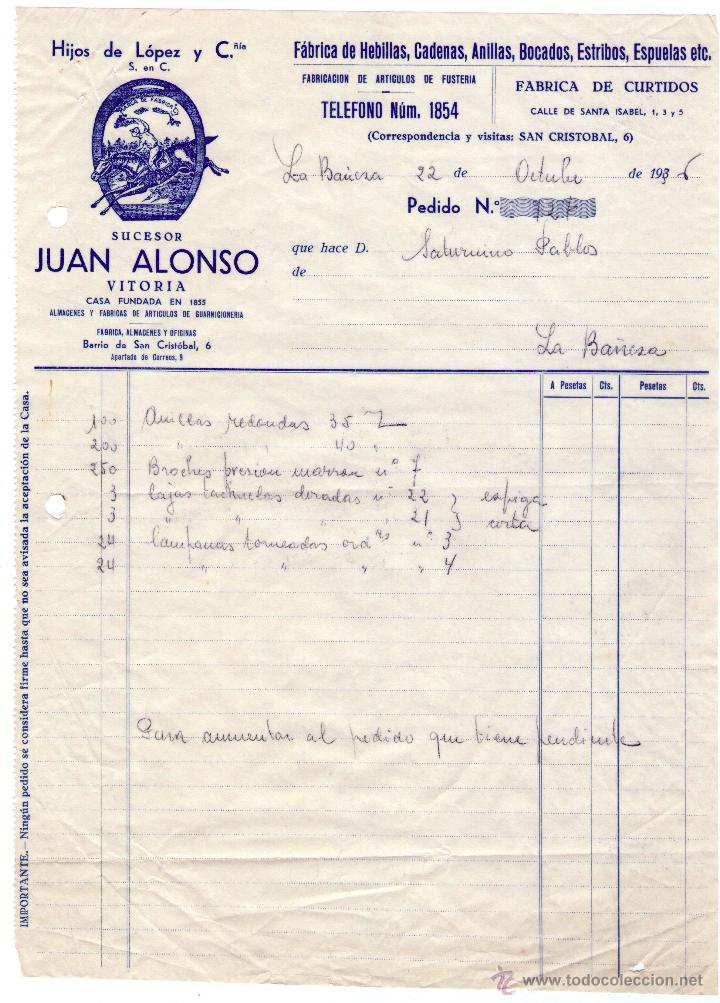 Hijos de López y C.ñía
S. en C.
MARCA DE FABRICA
SUCESOR
JUAN ALONSO
VITORIA
CASA FUNDADA EN 1855
ALMACENES Y FABRICAS DE ARTICULOS DE GUARNICIONERIA
FABRICA, ALMACENES Y OFICINAS
Barrio de San Cristóbal, 6
Apartado de Correos, 9
Fábrica de Hebillas, Cadenas, Anillas, Bocados, Estribos, Espuelas etc.
FABRICACION DE ARTICULOS DE FUSTERIA
TELEFONO Núm. 1854
FABRICA DE CURTIDOS
CALLE DE SANTA ISABEL, 1, 3 y 5
(Correspondencia y visitas: SAN CRISTOBAL, 6)
La Bañeza 22 de Octubre de 1936
Pedido N.º
que hace D. Saturnino Pablos
de
La Bañeza
A Pesetas Cts. Pesetas Cts.
100 Anillas redondas 35
200 " " 40 "
250 Broches presion marron nº 7
3 Cajas tachuelas doradas nº 22 } espiga
3 " " " " 21 } corta
24 Campanas torneadas ordnas nº 3
24 " " " " 4
Para aumentar al pedido que tiene pendiente
IMPORTANTE.—Ningún pedido se considera firme hasta que no sea avisada la aceptación de la Casa.
www.todocoleccion.net